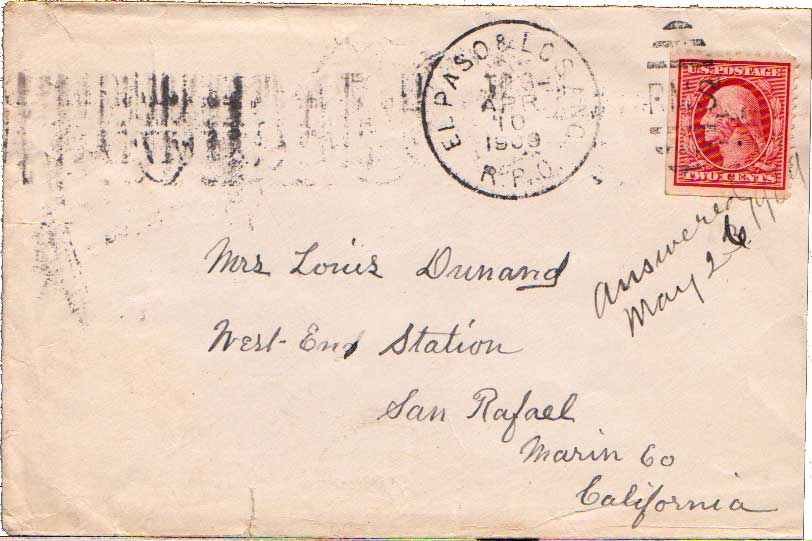 EL PASO & LOS ANG.
TR 31
APR
10
1909
R.P.O.
U.S. POSTAGE
TWO CENTS
answered
May 26 1909
Mrs Louis Dunand
West-End Station
San Rafael
Marin Co
California